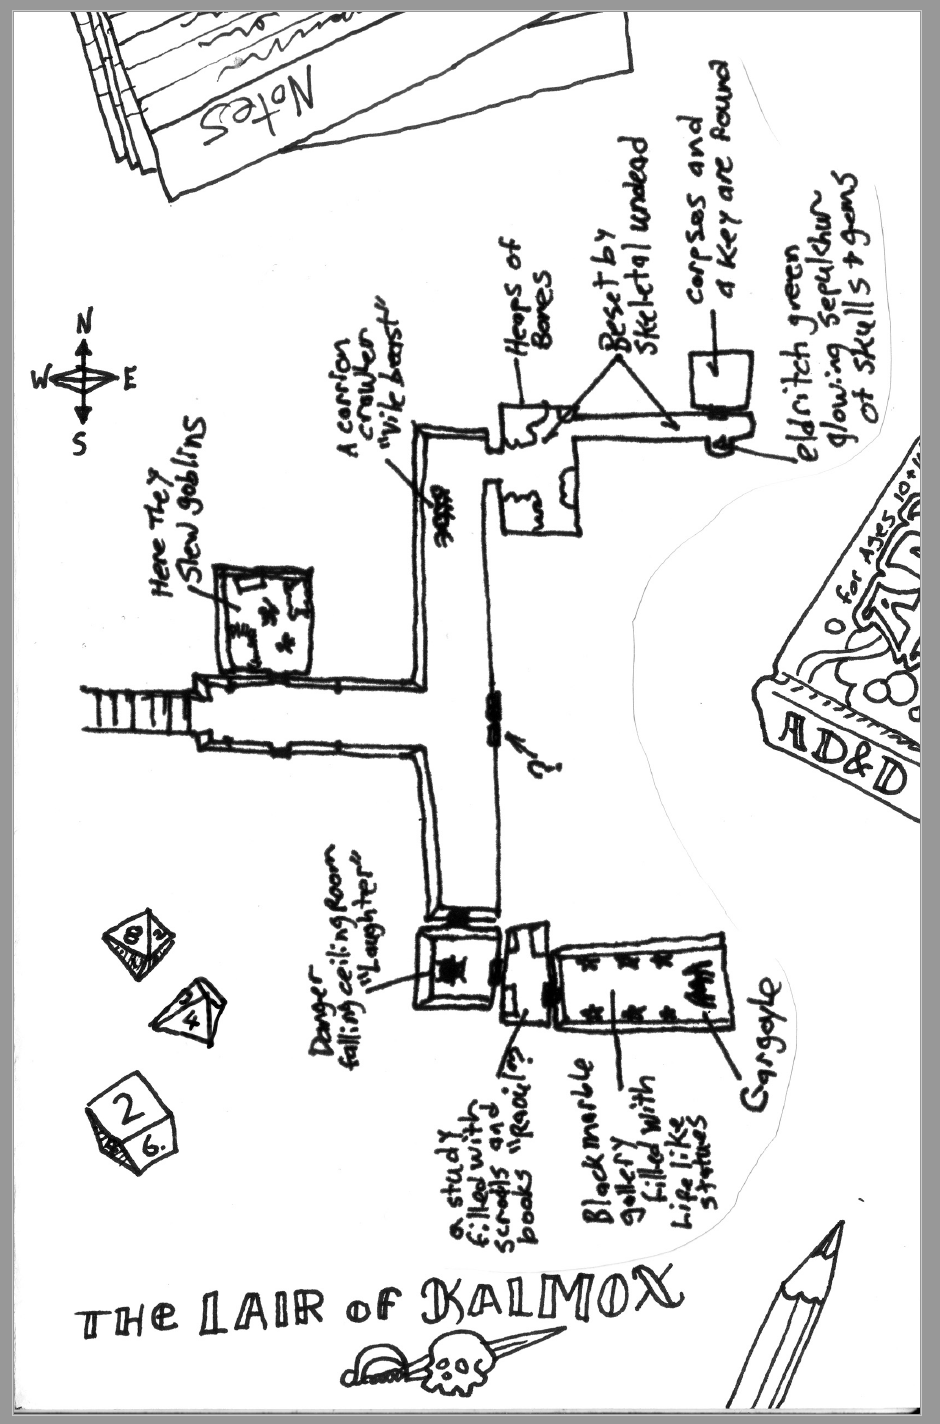 Notes
N
W E
S
Here They
Slew goblins
A carrion
crawler
"vile beast"
Heaps of
Bones
Beset by
Skeletal undead
corpses and
a key are found
eldritch green
glowing sepulchur
of skulls & gems
?
Danger
falling ceiling Room
"Laughter"
a study
filled with
scrolls and
books "Raoul?"
Black marble
gallery
filled with
Life like
statues
Gargoyle
for Ages 10+
AD&D
8
2
4
2
6.
THE LAIR OF KALMOX